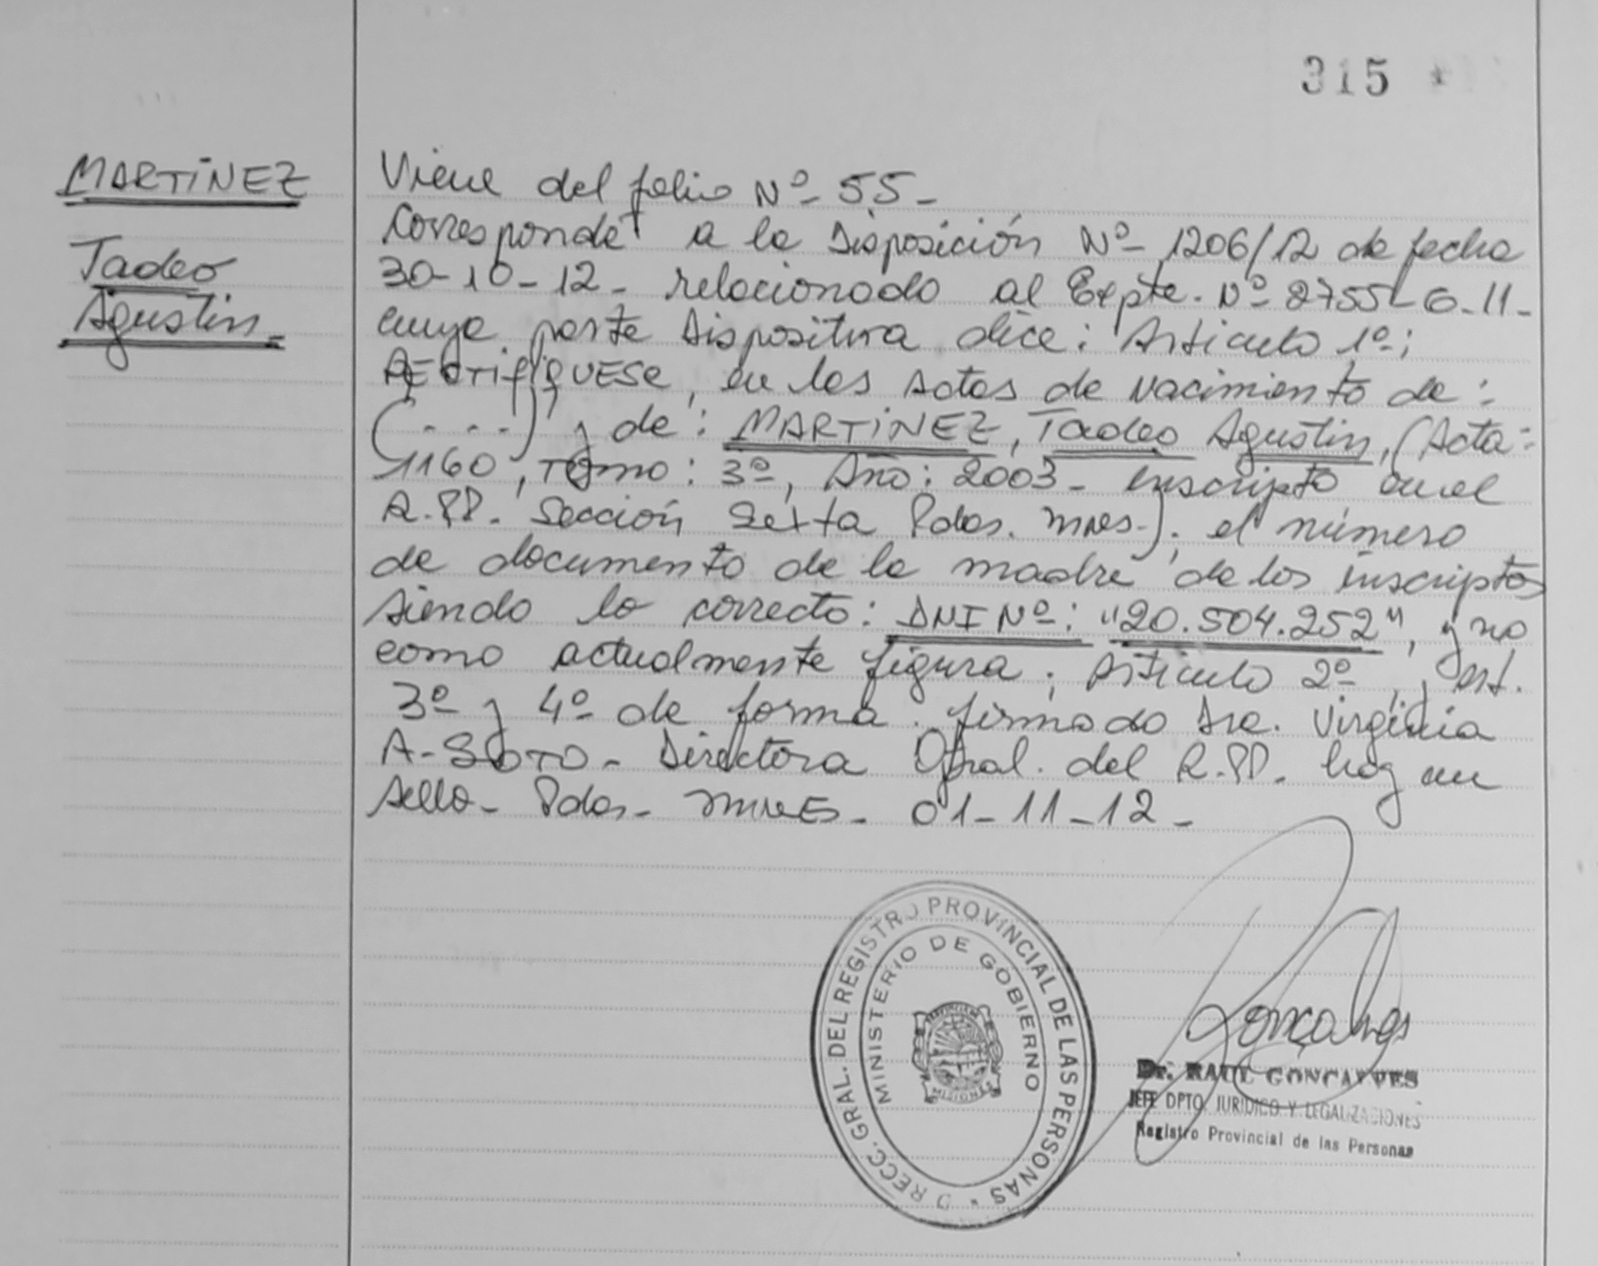 315
MARTíNEZ
Tadeo
Agustin.
Viene del folio Nº 55 -
Corresponde a la Disposición Nº 1206/12 de fecha
30-10-12 - relacionado al Expte. Nº 2755-G-11-
cuya parte Dispositiva dice: Articulo 1º:
RECTIFIQUESE, en las Actas de Nacimiento de:
(...) y de: MARTíNEZ, Tadeo Agustin, (Acta:
1160, Tomo: 3º, Año: 2003 - inscripto en el
R.PP. Sección Sexta Pdas. Mnes.); el número
de documento de la madre de los inscriptos
siendo lo correcto: DNI Nº: "20.504.252", y no
como actualmente figura; Articulo 2º, Art.
3º y 4º de forma. firmado Dra. Virginia
A. SOTO - Directora Gral. del R.PP. hay un
sello - Pdas - MNES - 01-11-12 -
DIRECC. GRAL. DEL REGISTRO PROVINCIAL DE LAS PERSONAS
MINISTERIO DE GOBIERNO
MISIONES
Gonçalves
Dr. RAUL GONCALVES
JEFE DPTO. JURIDICO Y LEGALIZACIONES
Registro Provincial de las Personas